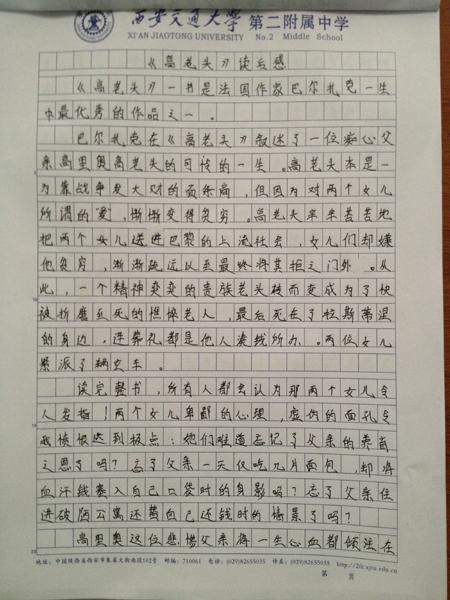 西安交通大学 第二附属中学
XI'AN JIAOTONG UNIVERSITY No.2 Middle School
《高老头》读后感
《高老头》一书是法国作家巴尔扎克一生
中最优秀的作品之一。
巴尔扎克在《高老头》叙述了一位痴心父
亲高里奥高老头的可怜的一生。高老头本是一
为靠战争发大财的面条商,但因为对两个女儿
所谓的“爱”,渐渐变得贫穷。高老头辛辛苦苦地
把两个女儿送进巴黎的上流社会,女儿们却嫌
他贫穷,渐渐疏远以至最终将其拒之门外。从
此,一个精神奕奕的贵族老头转而变成为了快
被折磨至死的憔悴老人,最后死在了拉斯蒂涅
的身边,连葬礼都是他人凑钱所办。两位女儿
紧派了辆空车。
读完整书,所有人都会认为那两个女儿令
人发指!两个女儿卑鄙的心理,虚伪的面孔令
我愤恨达到极点:她们难道忘记了父亲的养育
之恩了吗?忘了父亲一天仅吃几片面包,却将
血汗钱塞入自己口袋时的身影吗?忘了父亲住
进破陋公寓还替自己还钱时的情景了吗?
高里奥这位悲惨父亲将一生心血都倾注在
地址:中国陕西省西安市朱雀大街南段102号 邮编:710061 电话:(029)82655035 传真:(029)82655035 http://2fz.xjtu.edu.cn
第 页